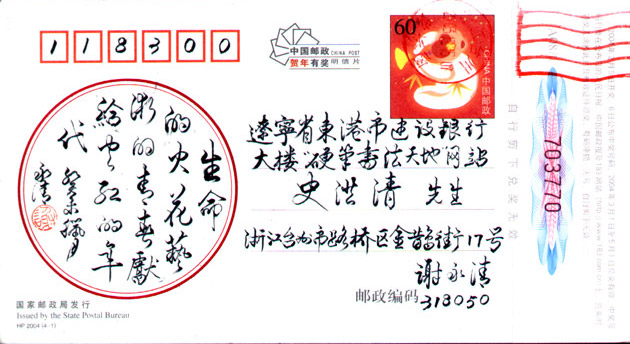 118300
中国邮政 CHINA POST
贺年有奖 明信片
60分
CHINA 中国邮政
辽宁省東港市建设银行
大楼 硬筆書法天地网站
史洪清 先生
浙江台州市路桥区金 街17号
谢永清
邮政编码 318050
生命
的火花藝
術的青春獻
给火红的年
代
癸未臘月
永清
国家邮政局发行
Issued by the State Postal Bureau
HP 2004 (4-1)
自行剪下兑奖无效
703770